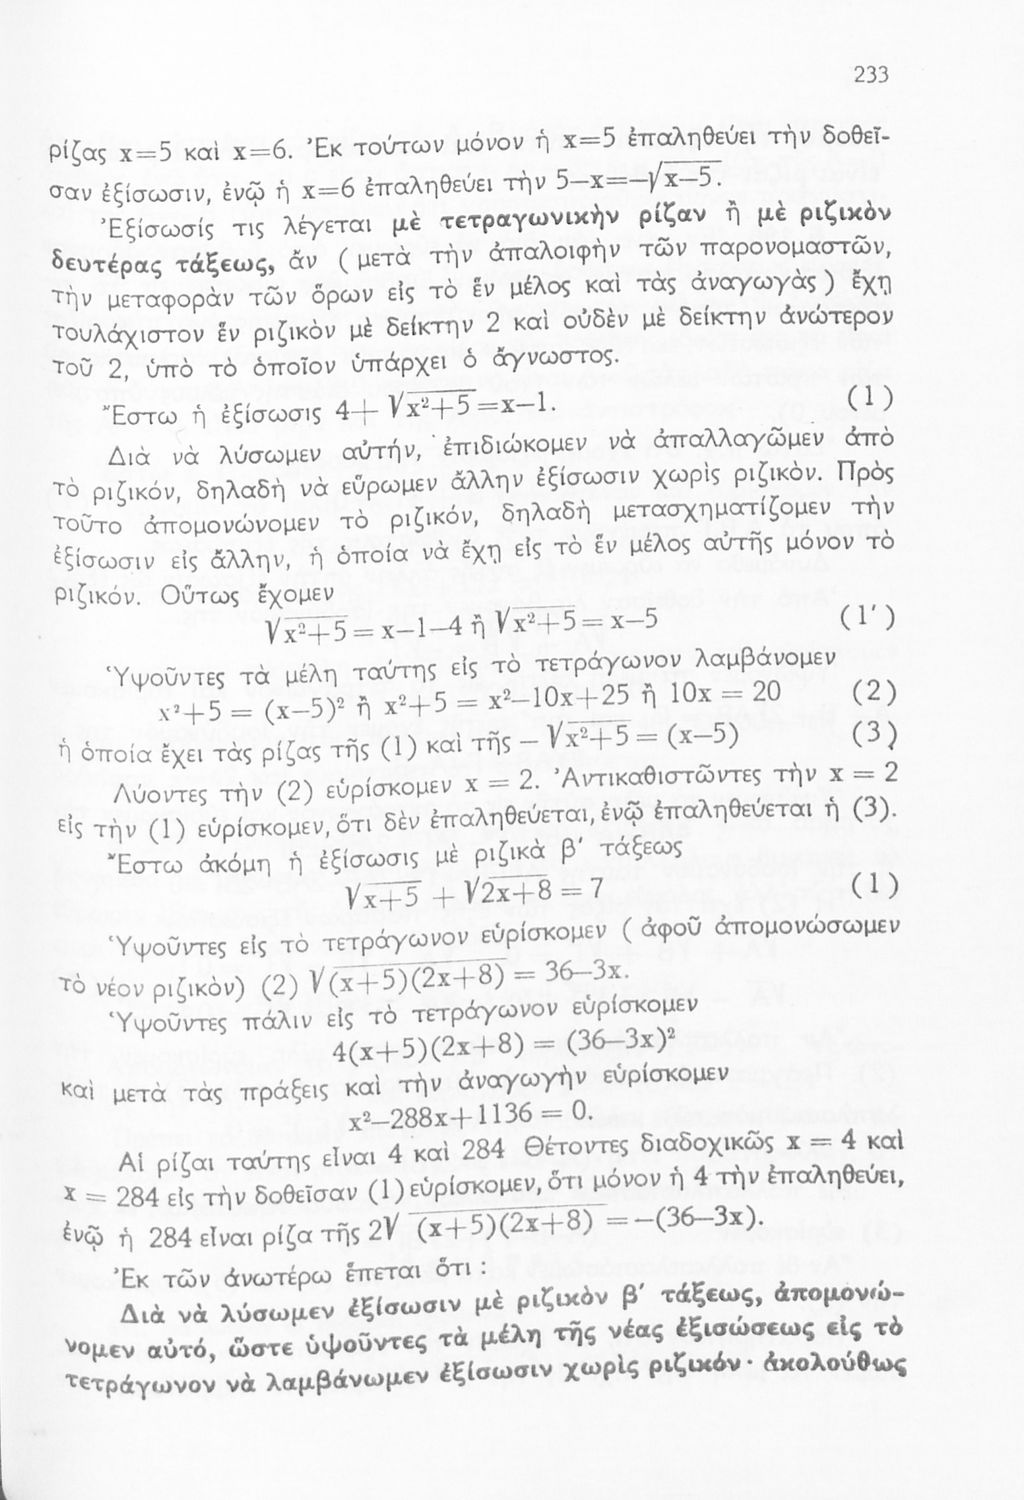 233
ρίζας x=5 καὶ x=6. Ἐκ τούτων μόνον ἡ x=5 ἐπαληθεύει τὴν δοθεῖ-
σαν ἐξίσωσιν, ἐνῷ ἡ x=6 ἐπαληθεύει τὴν 5—x=—√x—5.
Ἐξίσωσίς τις λέγεται μὲ τετραγωνικὴν ρίζαν ἢ μὲ ριζικὸν
δευτέρας τάξεως, ἄν ( μετὰ τὴν ἀπαλοιφὴν τῶν παρονομαστῶν,
τὴν μεταφορὰν τῶν ὅρων εἰς τὸ ἓν μέλος καὶ τὰς ἀναγωγὰς ) ἔχῃ
τουλάχιστον ἓν ριζικὸν μὲ δείκτην 2 καὶ οὐδὲν μὲ δείκτην ἀνώτερον
τοῦ 2, ὑπὸ τὸ ὁποῖον ὑπάρχει ὁ ἄγνωστος.
Ἔστω ἡ ἐξίσωσις 4+ √x²+5=x—1. (1)
Διὰ νὰ λύσωμεν αὐτήν, ἐπιδιώκομεν νὰ ἀπαλλαγῶμεν ἀπὸ
τὸ ριζικόν, δηλαδὴ νὰ εὕρωμεν ἄλλην ἐξίσωσιν χωρὶς ριζικὸν. Πρὸς
τοῦτο ἀπομονώνομεν τὸ ριζικόν, δηλαδὴ μετασχηματίζομεν τὴν
ἐξίσωσιν εἰς ἄλλην, ἡ ὁποία νὰ ἔχῃ εἰς τὸ ἓν μέλος αὐτῆς μόνον τὸ
ριζικόν. Οὕτως ἔχομεν
√x²+5 = x—1—4 ἢ √x²+5 = x—5 (1′)
Ὑψοῦντες τὰ μέλη ταύτης εἰς τὸ τετράγωνον λαμβάνομεν
x²+5 = (x—5)² ἢ x²+5 = x²—10x+25 ἢ 10x = 20 (2)
ἡ ὁποία ἔχει τὰς ρίζας τῆς (1) καὶ τῆς — √x²+5 = (x—5) (3)
Λύοντες τὴν (2) εὑρίσκομεν x = 2. Ἀντικαθιστῶντες τὴν x = 2
εἰς τὴν (1) εὑρίσκομεν, ὅτι δὲν ἐπαληθεύεται, ἐνῷ ἐπαληθεύεται ἡ (3).
Ἔστω ἀκόμη ἡ ἐξίσωσις μὲ ριζικὰ β′ τάξεως
√x+5 + √2x+8 = 7 (1)
Ὑψοῦντες εἰς τὸ τετράγωνον εὑρίσκομεν ( ἀφοῦ ἀπομονώσωμεν
τὸ νέον ριζικὸν) (2) √(x+5)(2x+8) = 36—3x.
Ὑψοῦντες πάλιν εἰς τὸ τετράγωνον εὑρίσκομεν
4(x+5)(2x+8) = (36—3x)²
καὶ μετὰ τὰς πράξεις καὶ τὴν ἀναγωγὴν εὑρίσκομεν
x²—288x+1136 = 0.
Αἱ ρίζαι ταύτης εἶναι 4 καὶ 284 Θέτοντες διαδοχικῶς x = 4 καὶ
x = 284 εἰς τὴν δοθεῖσαν (1) εὑρίσκομεν, ὅτι μόνον ἡ 4 τὴν ἐπαληθεύει,
ἐνῷ ἡ 284 εἶναι ρίζα τῆς 2√ (x+5)(2x+8) = —(36—3x).
Ἐκ τῶν ἀνωτέρω ἕπεται ὅτι :
Διὰ νὰ λύσωμεν ἐξίσωσιν μὲ ριζικὸν β′ τάξεως, ἀπομονώ-
νομεν αὐτό, ὥστε ὑψοῦντες τὰ μέλη τῆς νέας ἐξισώσεως εἰς τὸ
τετράγωνον νὰ λαμβάνωμεν ἐξίσωσιν χωρὶς ριζικόν· ἀκολούθως